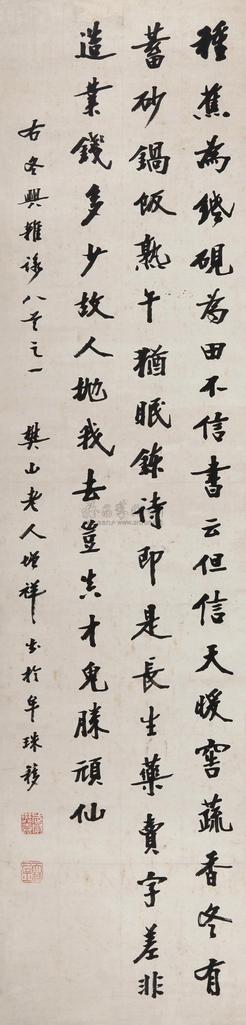 種蕉為紙硯為田不信書云但信天暖窖蔬香冬有
蓄砂鍋飯熟午猶眠鍊詩即是長生藥賣字差非
造業錢多少故人拋我去豈真才鬼勝頑仙
右冬興雜詠八首之一 樊山老人增祥書於牟珠簃